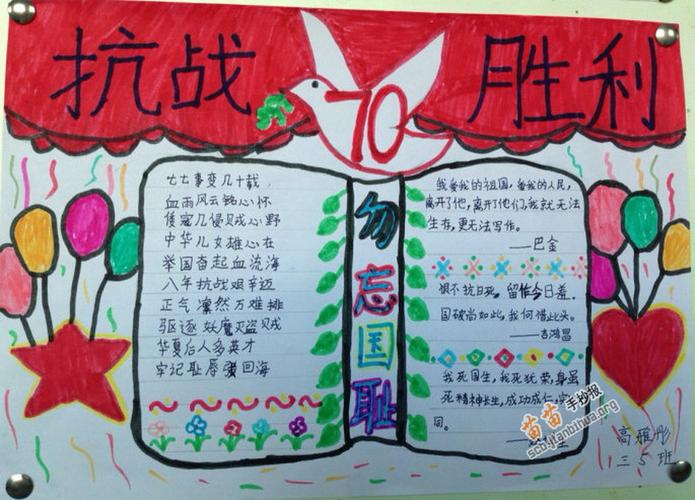 抗战 70 胜利
七七事变几十载,
血雨风云铭心怀
倭寇几侵贼心野
中华儿女雄心在
举国奋起血流海
八年抗战艰辛迈
正气凛然万难排
驱逐妖魔灭盗贼
华夏后人多英才
牢记耻辱 回海
勿忘国耻
我爱我的祖国,爱我的人民,
离开了他,离开了他们,我就无法
生存,更无法写作。
——巴金
恨不抗日死,留作今日羞。
国破尚如此,我何惜此头。
——吉鸿昌
我死国生,我死犹荣,身虽
死精神长生,成功成仁,实
同。
苗苗手抄报
scb.jianbihua.org
高雅彤
三5班